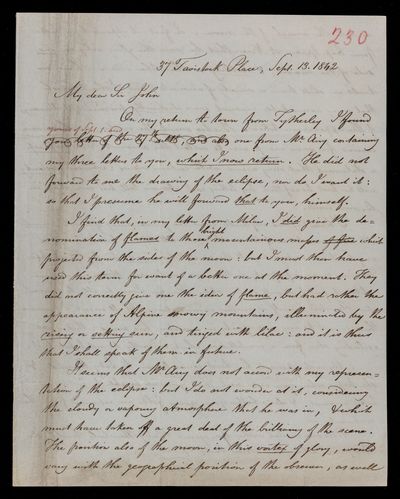 230
37 Tavistock Place, Sept. 13. 1842
My dear Sir John
On my return to town from Tytherley I found
yours of Sept. 1. and
your letter of the 27th ult., and also one from Mr. Airy containing
my three letters to you, which I now return. He did not
forward to me the drawing of the eclipse, nor do I want it:
so that I presume he will forward that to you, himself.
I find that, in my letter from Milan, I did give the de-
bright
nomination of flames to those mountainous masses of fire which
projected from the sides of the moon: but I must then have
used this term for want of a better one at the moment. They
did not correctly give one the idea of flame, but had rather the
appearance of Alpine snowy mountains, illuminated by the
rising or setting sun, and tinged with lilac: and it is thus
that I shall speak of them in future.
It seems that Mr. Airy does not accord with my represen-
tation of the eclipse: but I do not wonder at it, considering
the cloudy or vapoury atmosphere that he was in, & which
must have taken off a great deal of the brilliancy of the scene.
The position also of the moon, in this vortex of glory, would
vary with the geographical position of the observer, as well